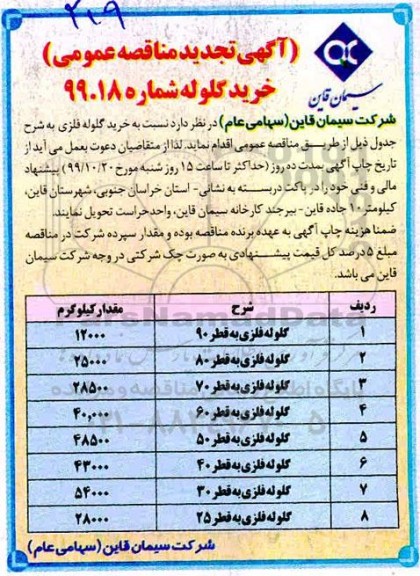 ۳۱۹
(آگهی تجدید مناقصه عمومی)
خرید گلوله شماره ۹۹.۱۸
سیمان قاین
شرکت سیمان قاین (سهامی عام) در نظر دارد نسبت به خرید گلوله فلزی به شرح
جدول ذیل از طریق مناقصه عمومی اقدام نماید. لذا از متقاضیان دعوت بعمل می آید از
تاریخ چاپ آگهی بمدت ده روز (حداکثر تا ساعت ۱۵ روز شنبه مورخ ۹۹/۱۰/۲۰) پیشنهاد
مالی و فنی خود را در پاکت دربسته به نشانی- استان خراسان جنوبی، شهرستان قاین،
کیلومتر ۱۰ جاده قاین- بیرجند کارخانه سیمان قاین، واحد حراست تحویل نمایند.
ضمنا هزینه چاپ آگهی به عهده برنده مناقصه بوده و مقدار سپرده شرکت در مناقصه
مبلغ ۵ درصد کل قیمت پیشنهادی به صورت چک شرکتی در وجه شرکت سیمان
قاین می باشد.
ردیف شرح مقدار کیلوگرم
۱ گلوله فلزی به قطر ۹۰ ۱۲۰۰۰
۲ گلوله فلزی به قطر ۸۰ ۲۵۰۰۰
۳ گلوله فلزی به قطر ۷۰ ۲۸۵۰۰
۴ گلوله فلزی به قطر ۶۰ ۴۰,۰۰۰
۵ گلوله فلزی به قطر ۵۰ ۴۸۵۰۰
۶ گلوله فلزی به قطر ۴۰ ۴۳۰۰۰
۷ گلوله فلزی به قطر ۳۰ ۵۴۰۰۰
۸ گلوله فلزی به قطر ۲۵ ۲۸۰۰۰
شرکت سیمان قاین (سهامی عام)